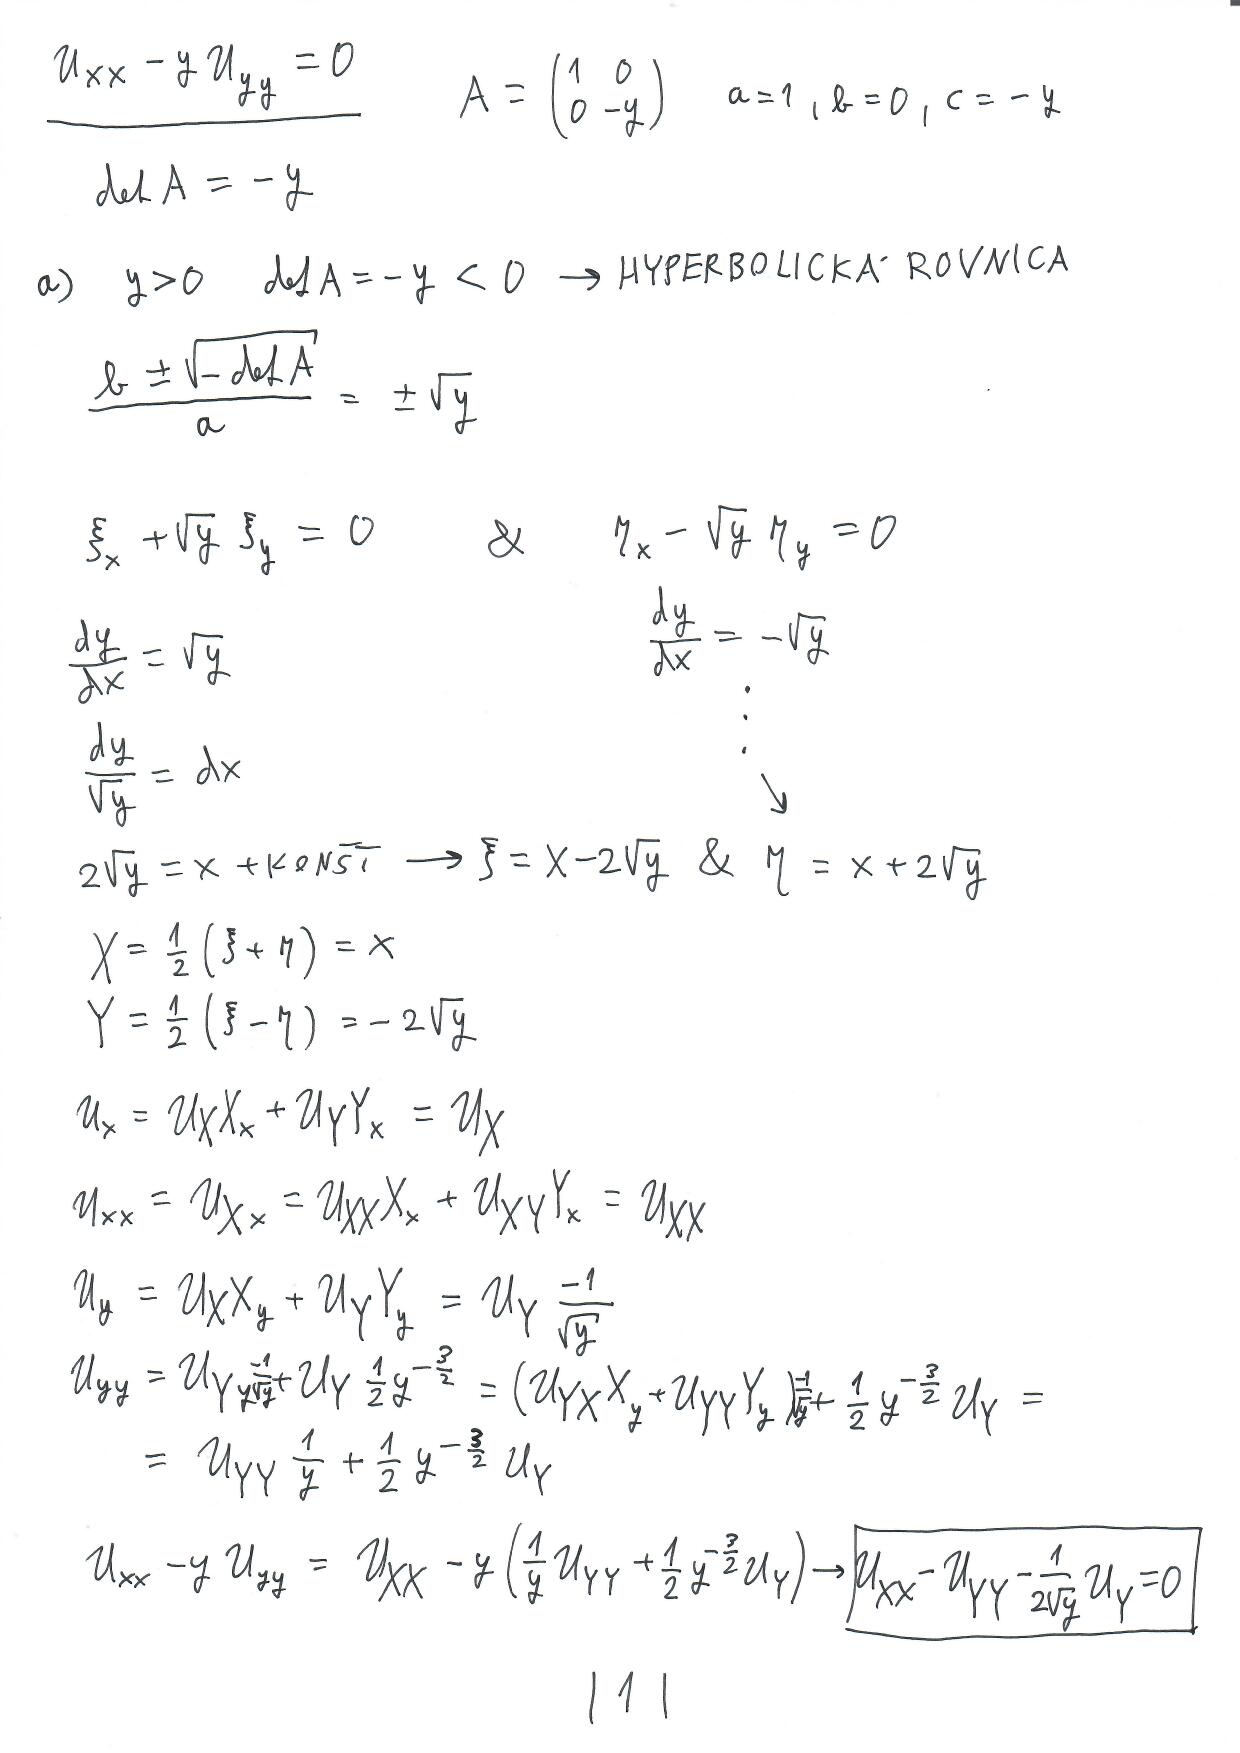 u_xx - y u_yy = 0    A = (1 0 ; 0 -y)    a = 1, b = 0, c = -y
det A = -y
a) y > 0    det A = -y < 0 → HYPERBOLICKÁ ROVNICA
(b ± √(-det A)) / a = ± √y
ξ_x + √y ξ_y = 0    &    η_x - √y η_y = 0
dy/dx = √y    dy/dx = -√y
dy/√y = dx    ⋮ ↘
2√y = x + KONŠT → ξ = x - 2√y & η = x + 2√y
X = 1/2 (ξ + η) = x
Y = 1/2 (ξ - η) = -2√y
u_x = u_X X_x + u_Y Y_x = u_X
u_xx = u_Xx = u_XX X_x + u_XY Y_x = u_XX
u_y = u_X X_y + u_Y Y_y = u_Y (-1/√y)
u_yy = u_Yy (-1/√y) + u_Y 1/2 y^(-3/2) = (u_YX X_y + u_YY Y_y) (-1/√y) + 1/2 y^(-3/2) u_Y =
= u_YY 1/y + 1/2 y^(-3/2) u_Y
u_xx - y u_yy = u_XX - y (1/y u_YY + 1/2 y^(-3/2) u_Y) → u_XX - u_YY - 1/(2√y) u_Y = 0
|1|